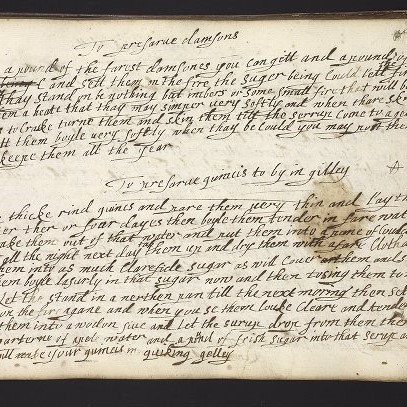 To preserve damsons
a pound of the farest damsones you can gett and a pound of
and sett them on the fire the suger being Could lett
thay stand on be nothing but imbers or some small fire that will
em a heat that thay may simper very softly and when thare
to Crake turne them and skim them till the serrup Come to a
tt them boyle very softly when thay be Could you may pott them
keepe them all the year
To preserve quinces to by in gelley
thicke rind quincs and pare them very thin and lay th
ter thre or four dayes then boyle them tender in fare wate
ake them out of that water and putt them into a pane of Could
all the night next day them up and dry them with a fare Cloth
hem into as much Clarefide sugar as will Couer them
em boyle lasurly in that sugar now and then tosing them
Let the stand in a nerthen pan till the next moring then set
on the fire agane and when you se them looke Cleare and tender
them into a wodon siue and let the surup drop from them then
quarterne of water and a pound of fresh sugar into that serup
will make your quincis in quiking gelley